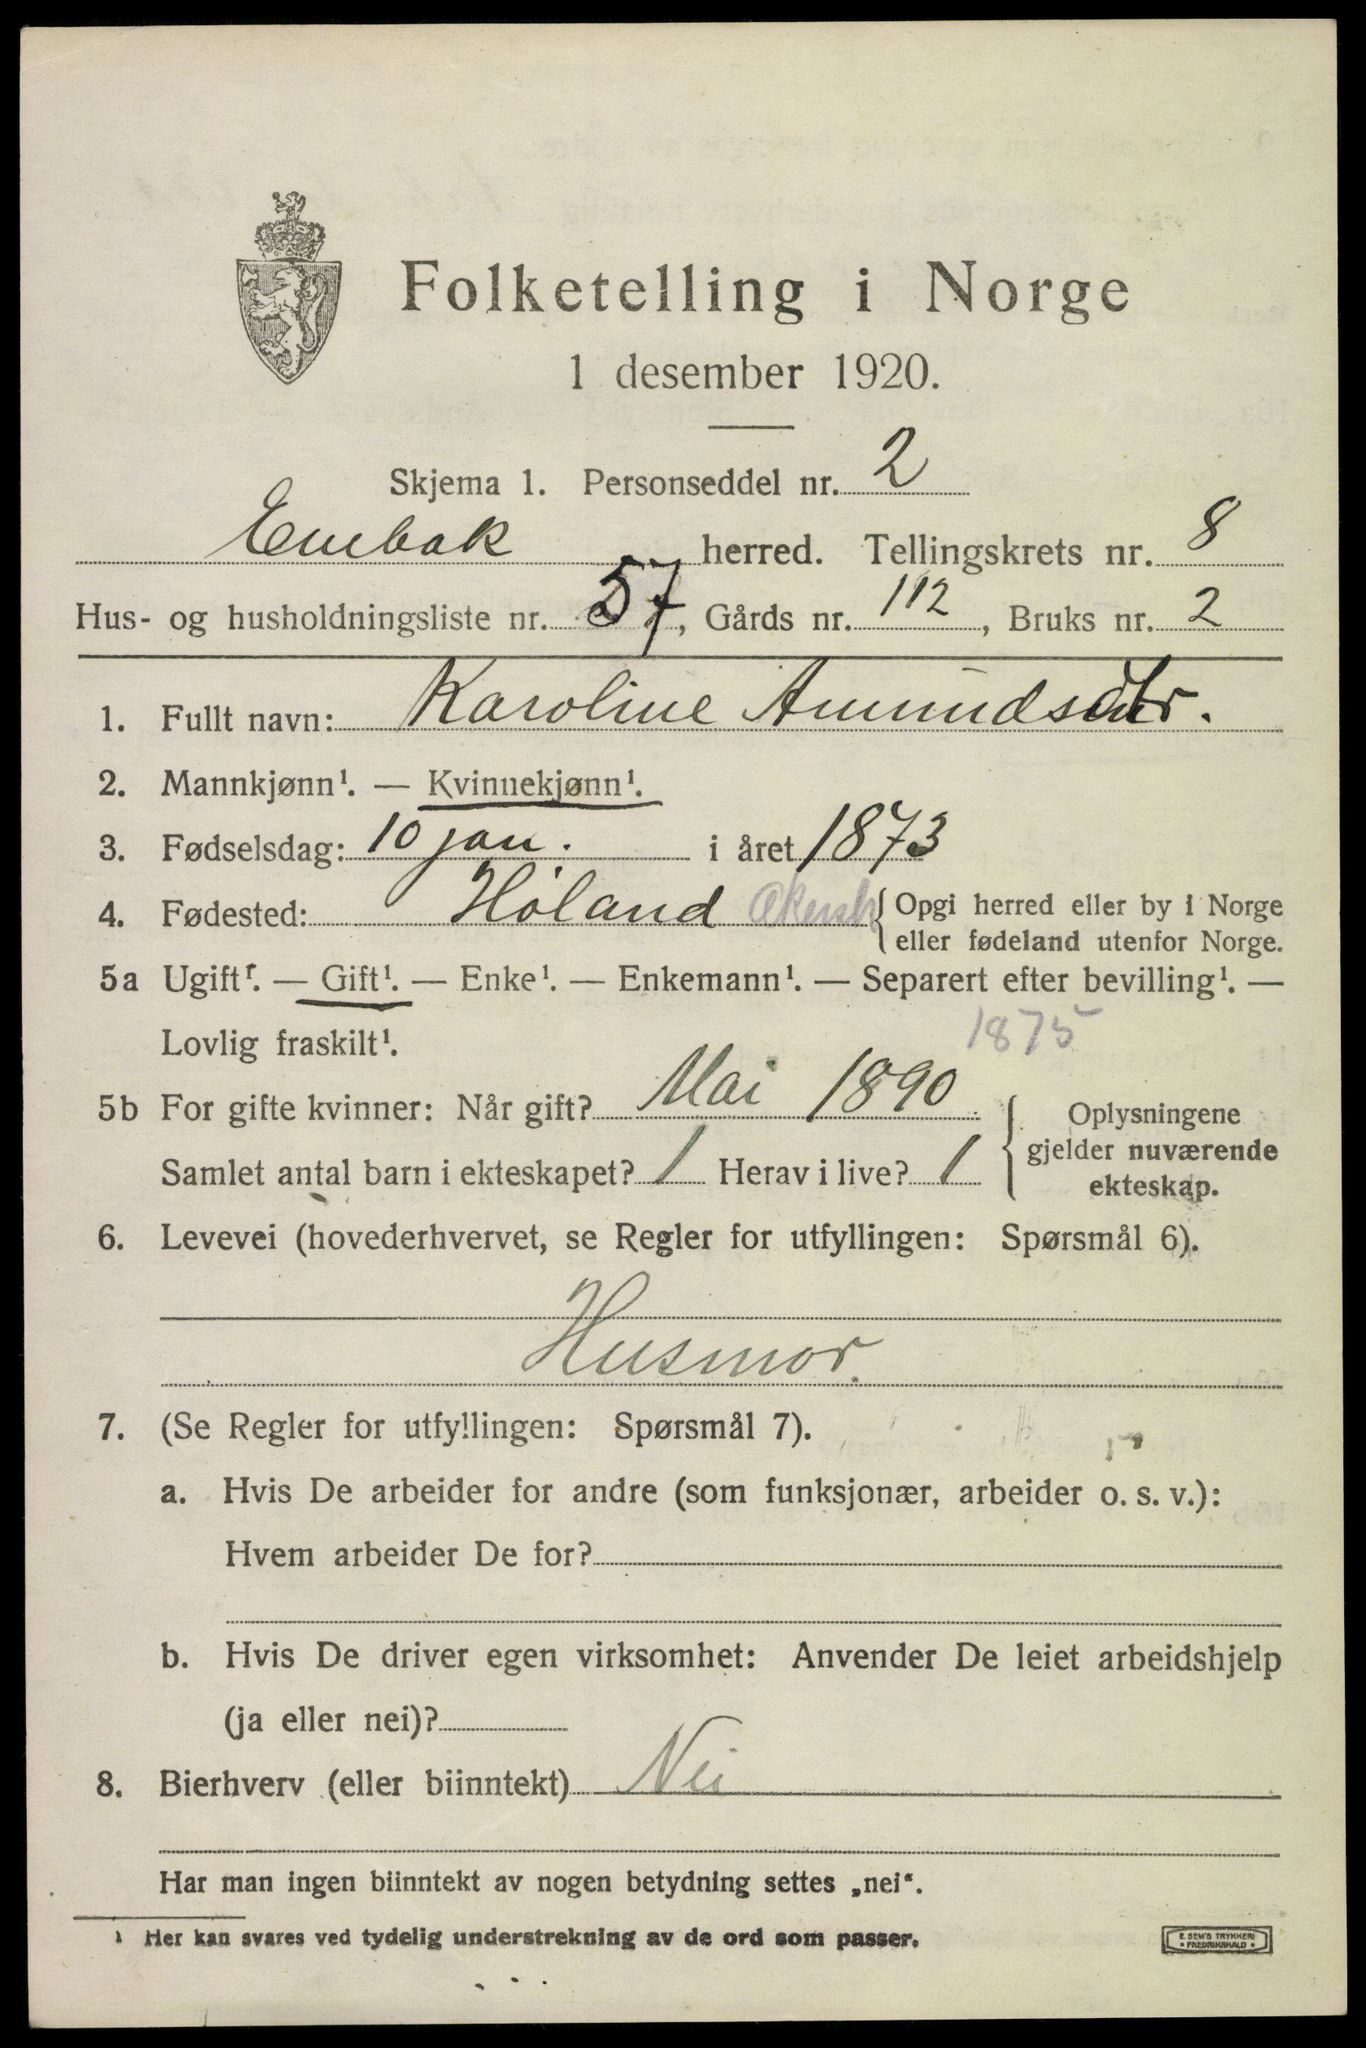 Folketelling i Norge
1 desember 1920.
Skjema 1. Personseddel nr. 2
Enebak herred. Tellingskrets nr. 8
Hus- og husholdningsliste nr. 57, Gårds nr. 112, Bruks nr. 2
1. Fullt navn: Karoline
2. Mannkjønn¹. — Kvinnekjønn¹.
3. Fødselsdag: 10 jan. i året 1873
4. Fødested: Høland Akersh { Opgi herred eller by i Norge
eller fødeland utenfor Norge.
5a Ugift¹. — Gift¹. — Enke¹. — Enkemann¹. — Separert efter bevilling¹. —
Lovlig fraskilt¹.
1875
5b For gifte kvinner: Når gift? Mai 1890
Samlet antal barn i ekteskapet? 1 Herav i live? 1
{ Oplysningene
gjelder nuværende
ekteskap.
6. Levevei (hovederhvervet, se Regler for utfyllingen: Spørsmål 6).
Husmor.
7. (Se Regler for utfyllingen: Spørsmål 7).
a. Hvis De arbeider for andre (som funksjonær, arbeider o. s. v.):
Hvem arbeider De for?
b. Hvis De driver egen virksomhet: Anvender De leiet arbeidshjelp
(ja eller nei)?
8. Bierhverv (eller biinntekt) Nei
Har man ingen biinntekt av nogen betydning settes „nei“.
¹ Her kan svares ved tydelig understrekning av de ord som passer.
E. SEM'S TRYKKERI
• FREDRIKSHALD •